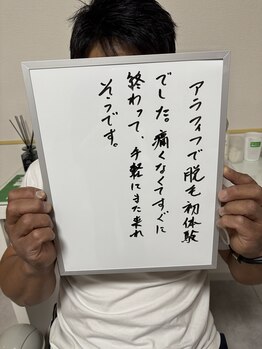 アラフィフで脱毛初体験
でした。痛くなくてすぐに
終わって、手軽にまた来れ
そうです。